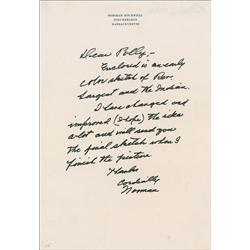 NORMAN ROCKWELL
STOCKBRIDGE
MASSACHUSETTS
Dear Polly,-
Enclosed is an early
color sketch of Peo.
Sargent and the Indian.
I have changed and
improved (I hope) the idea
a lot and will send you
the final sketch when I
finish the picture
Thanks
Cordially
Norman